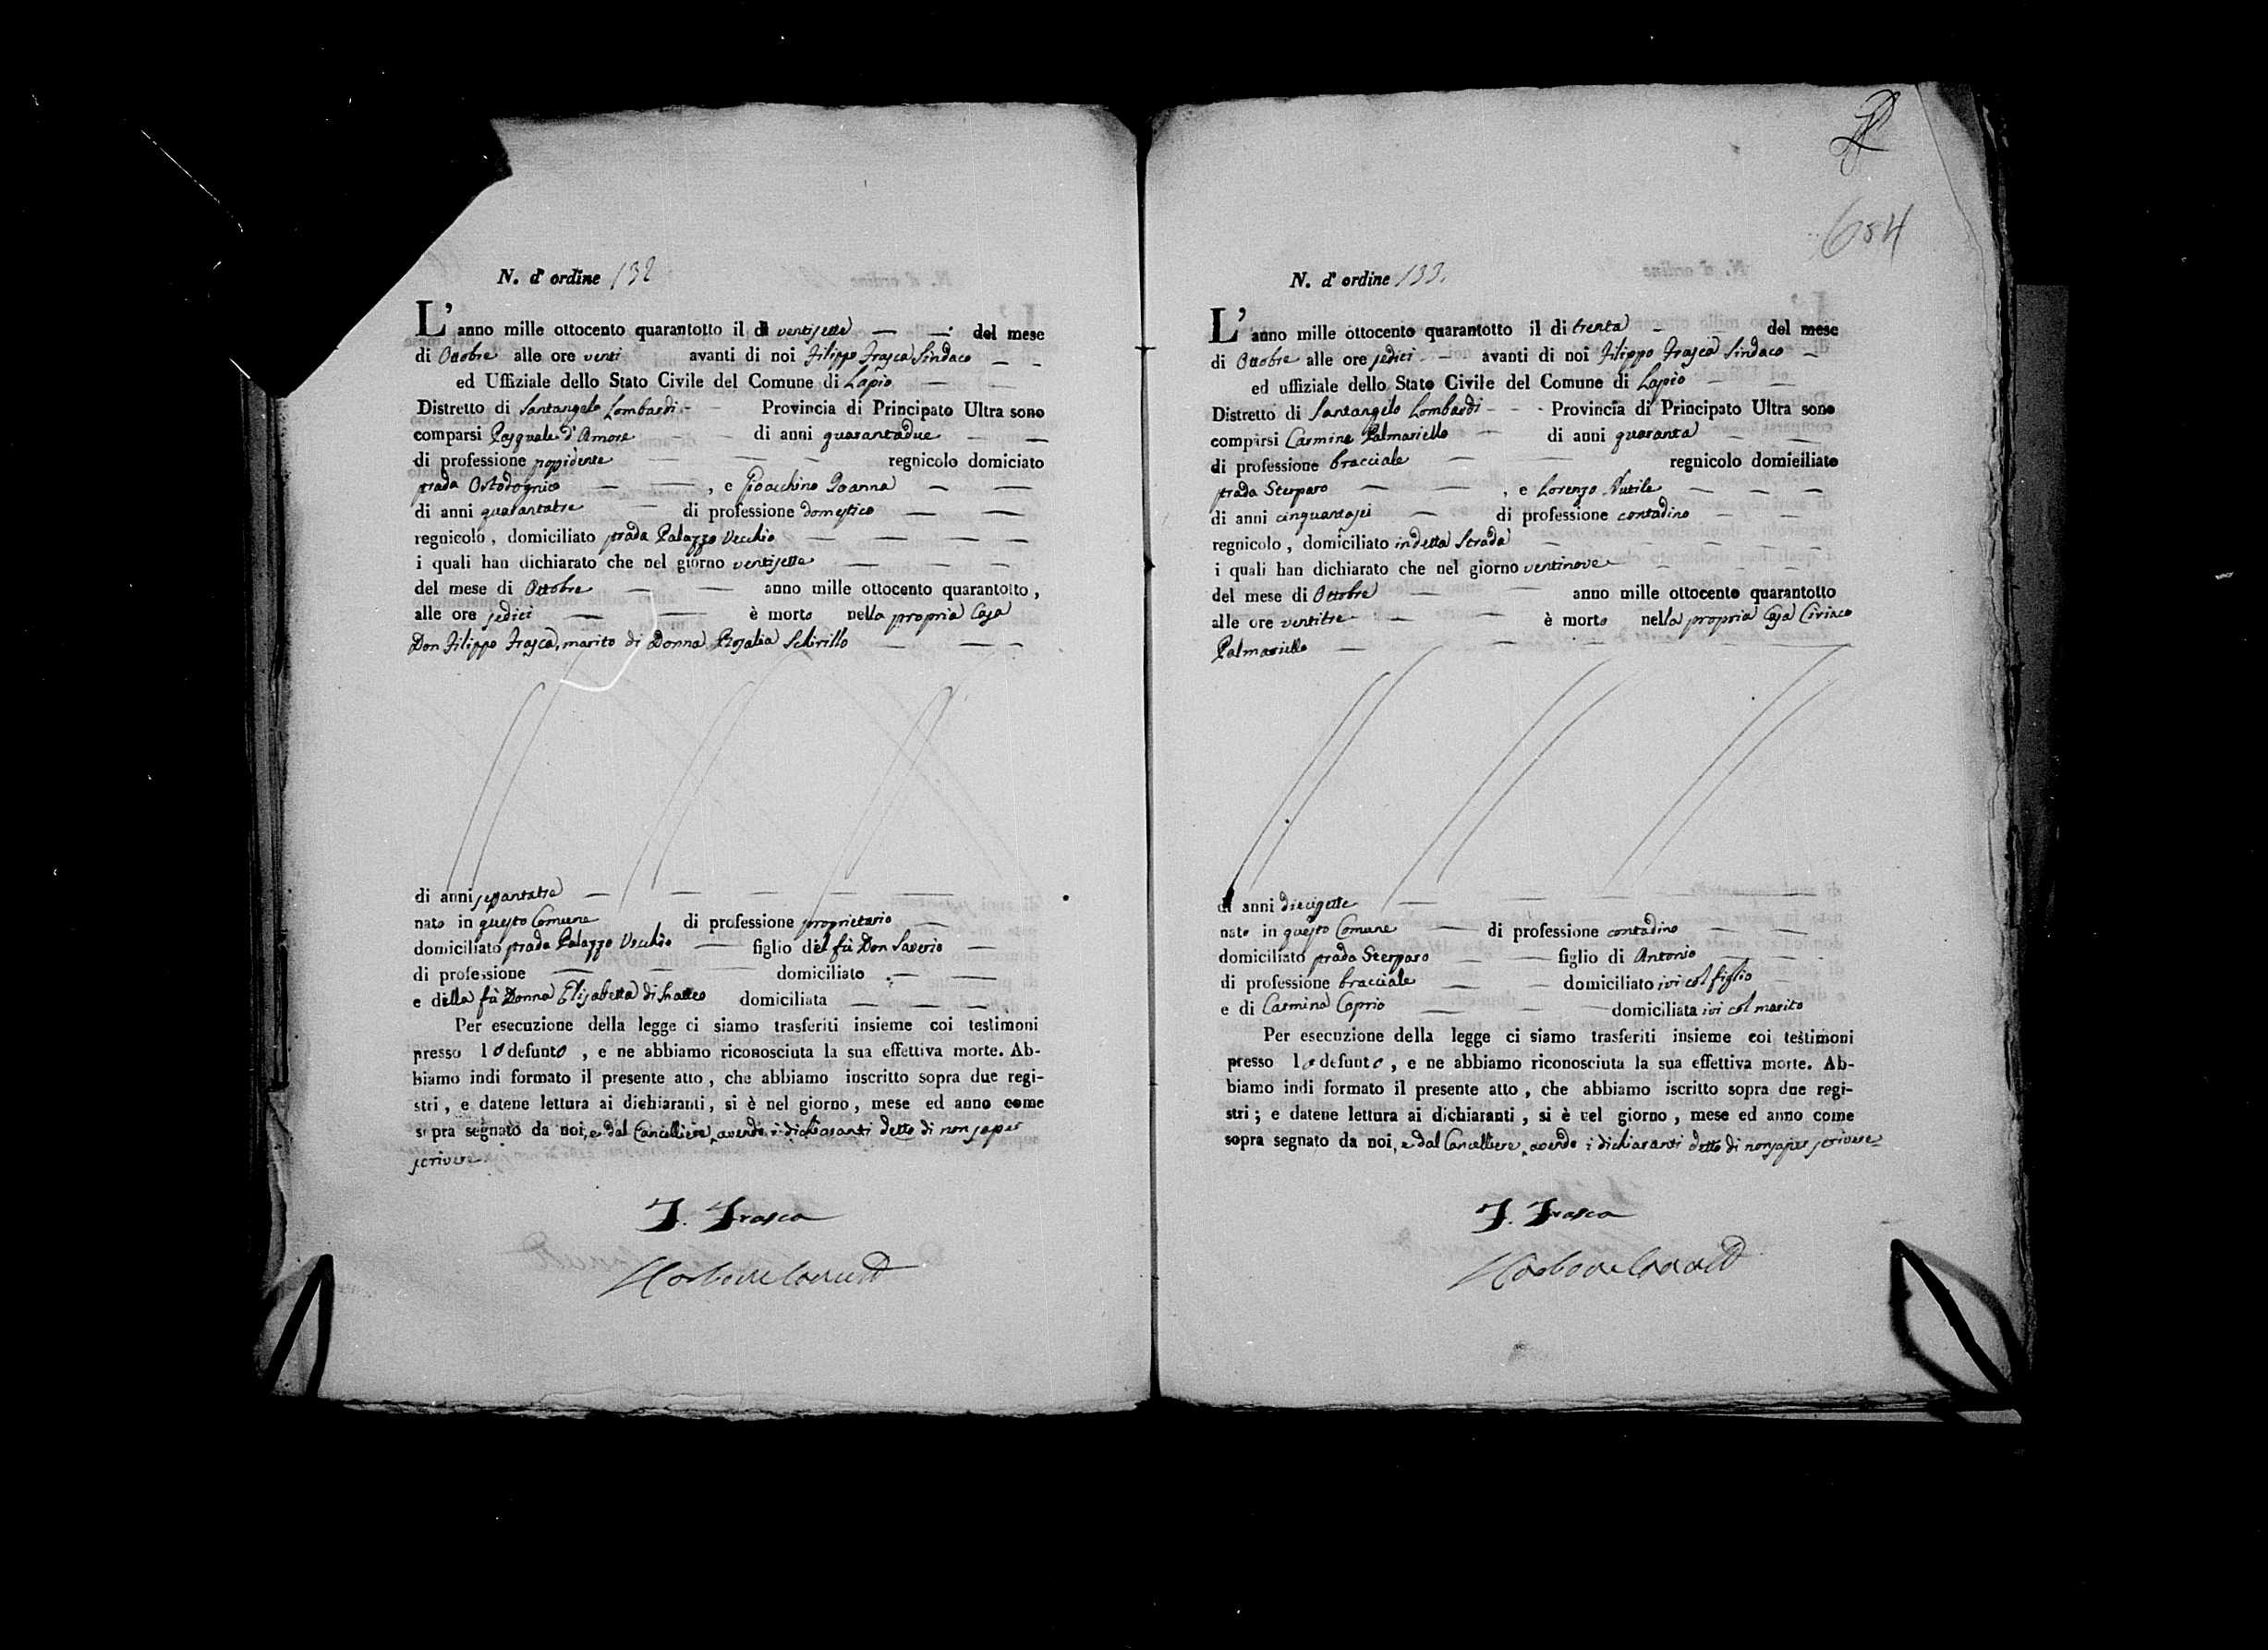 N. d' ordine 132
L' anno mille ottocento quarantotto il dì ventisette del mese
di Ottobre alle ore venti avanti di noi Filippo Frasca Sindaco
ed Uffiziale dello Stato Civile del Comune di Lapio
Distretto di Santangelo Lombardi Provincia di Principato Ultra sono
comparsi Pasquale d'Amore di anni quarantadue
di professione possidente regnicolo domiciato
strada Ostodognico , e Gioacchino Joanna
di anni quarantatre di professione domestico
regnicolo , domiciliato strada Palazzo Vecchio
i quali han dichiarato che nel giorno ventisette
del mese di Ottobre anno mille ottocento quarantotto ,
alle ore sedici è morto nella propria Casa
Don Filippo Frasca, marito di Donna Rosalia Schirillo
di anni settantatre
nato in questo Comune di professione proprietario
domiciliato strada Palazzo Vecchio figlio del fù Don Saverio
di professione domiciliato
e della fù Donna Elisabetta di domiciliata
Per esecuzione della legge ci siamo trasferiti insieme coi testimoni
presso lo defunto , e ne abbiamo riconosciuta la sua effettiva morte. Ab-
biamo indi formato il presente atto , che abbiamo inscritto sopra due regi-
stri , e datene lettura ai dichiaranti, si è nel giorno, mese ed anno come
sopra segnato da noi, e dal Cancelliere, avendo i dichiaranti detto di non saper
scrivere
F. Frasca
654
N. d' ordine 133.
L' anno mille ottocento quarantotto il di trenta del mese
di Ottobre alle ore sedici avanti di noi Filippo Frasca Sindaco
ed uffiziale dello Stato Civile del Comune di Lapio
Distretto di Santangelo Lombardi Provincia di Principato Ultra sono
comparsi Carmine Palmariello di anni quaranta
di professione bracciale regnicolo domiciliato
strada Sterparo , e Lorenzo Nutile
di anni cinquantasei di professione contadino
regnicolo , domiciliato in detta Strada
i quali han dichiarato che nel giorno ventinove
del mese di Ottobre anno mille ottocento quarantotto
alle ore ventitre è morto nella propria Casa Ciriaco
Palmariello
di anni diecisette
nato in questo Comune di professione contadino
domiciliato strada Sterparo figlio di Antonio
di professione bracciale domiciliato ivi col figlio
e di Carmina Caprio domiciliata ivi col marito
Per esecuzione della legge ci siamo trasferiti insieme coi testimoni
presso lo defunto , e ne abbiamo riconosciuta la sua effettiva morte. Ab-
biamo indi formato il presente atto , che abbiamo iscritto sopra due regi-
stri ; e datene lettura ai dichiaranti , si è nel giorno , mese ed anno come
sopra segnato da noi, e dal Cancelliere, avendo i dichiaranti detto di non saper scrivere
F. Frasca